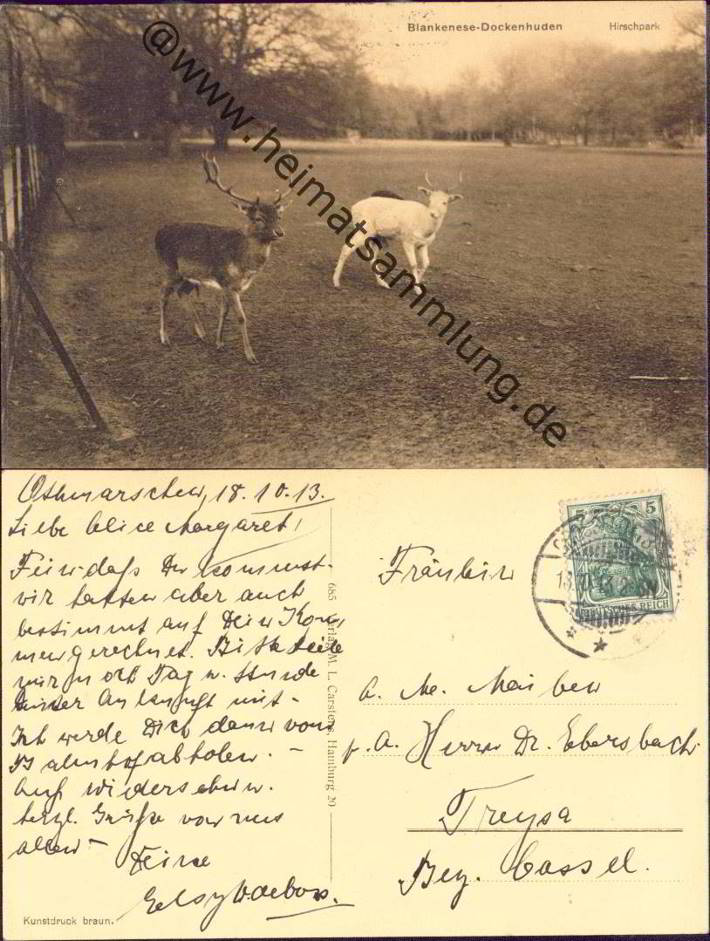 Blankenese-Dockenhuden Hirschpark
@www.heimatsammlung.de
Othmarschen, 18.10.13.
Liebe Alice Margaret!
Fein, daß Du kommst -
wir hatten aber auch
bestimmt auf Dein Kom-
men gerechnet. Bitte teile
mir noch Tag u. Stunde
Deiner Ankunft mit -
Ich werde Dich dann vom
Bahnhof abholen. -
Auf Wiedersehen.
herzl. Grüße von uns
allen -
Deine
685 Verlag M. L. Carstens, Hamburg 20
Kunstdruck braun.
5 5
DEUTSCHES REICH
Fräulein
A. M.
p. A. Herrn Dr. Ebersbach
Treysa
Bez. Cassel.